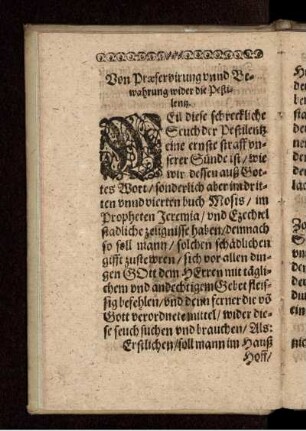 Von Præservirung vnnd Be-
wahrung wider die Pesti-
lentz.
WEil diese schreckliche
Seuch der Pestilentz
eine ernste straff vn-
serer Sünde ist / wie
wir dessen auß Got-
tes Wort / sonderlich aber im drit-
ten vnnd vierten buch Mosis / im
Propheten Jeremia / vnd Ezechiel
stadliche zeugnisse haben / demnach
so soll mann / solchen schädlichen
gifft zustewren / sich vor allen din-
gen GOtt dem HErren mit tägli-
chem vnd andechtigem Gebet fleis-
sig befehlen / vnd denn ferner die võ
Gott verordnete mittel / wider die-
se seuch suchen vnd brauchen / Als:
Erstlichen / soll mann im Hauß
Hoff /